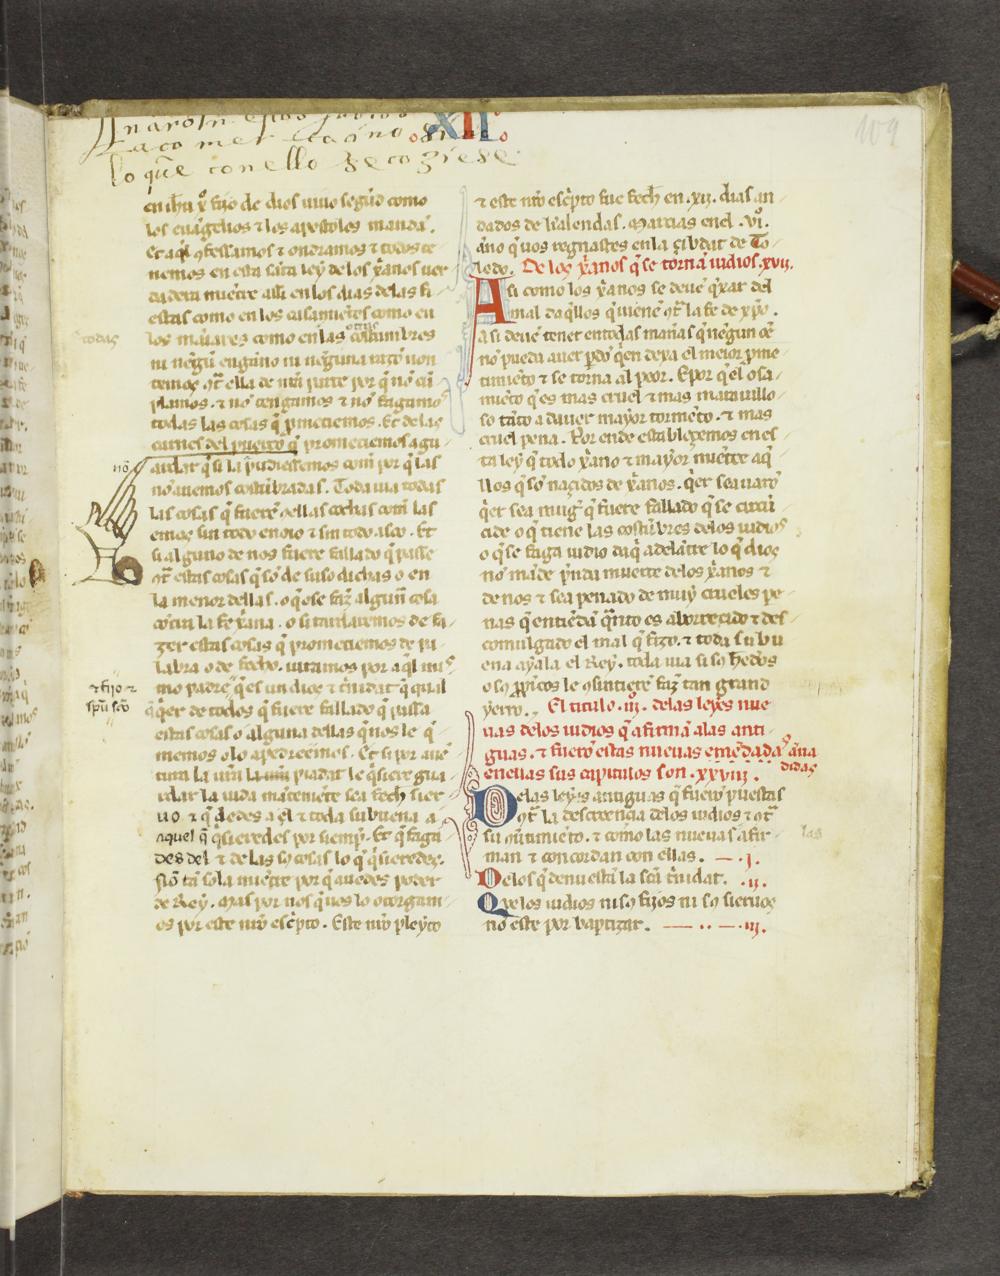 109
XII
lo que con ello se cogiese
en ihu xo fijo de dios uiuo segund como
los euangelios & los apostoles mandan.
Et aqi cofessamos & ondramos & todos te
nemos en esta santa ley de los xanos uer
dadera miente assi en los dias de las fi
estas como en los casamientos como en
los maiares como en las otras costumbres
todas
ni negun engano ni neguna razon non
tenemos
todas las cosas q prometiemos. Et de las
carnes del puerco q prometiemos agu
ardar q si las pudiessemos comer por q las
no
no auemos costubradas. Toda uia todas
las cosas q fuere dellas cochas com las
emos sin todo enoio & sin todo asco. Et
si alguno de nos fuere fallado q passe
estas cosas q son de suso dichas o en
la menor dellas. o q ose faz algun cosa
contra la fe xana. o si tardaremos de fa
zer estas cosas q prometiemos de pa
labra o de fecho. iuramos por aql mis
mo padre q es un dios & trinidat q qual
& fijo &
spu sco
qer de todos q fuere fallado q passa
estas cosas o alguna dellas q nos le q
memos o lo apedreemos. Et si por auen
tura la ura piadat le qsiere gua
rdar la uida mantenente sea fecho sier
uo & q dedes a el & toda su buena a
aquel q qsieredes por siempre. Et q faga
des del & de las sus cosas lo q qsieredes.
sio tan sola miente por q auedes poder
de Rey. Mas por nos q uos lo otorgam
os por este nro escpto. Este nro pleyto
& este nro escpto fue fecho en .xii. dias an
dados de kalendas. Marcias en el .vi.
ano q uos regnastes en la cibdat de To
ledo. De los xanos q se torna iudios .xvii.
Asi como los xanos se deue qxar del
mal daqllos q uiene cotra la fe de xpo.
asi deue tener en todas maneras q negun oe
no pueda auer pdo qen dexa el meior pme
timieto & se torna al peor. E por q el osa
mieto q es mas cruel & mas marauillo
so tanto a dauer mayor tormeto. & mas
cruel pena. Por ende establecemos en es
ta ley q todo xano & mayor miente aq
llos q so nacidos de xanos. qer sea uaron
qer sea mugr q fuere fallado q se circu
cide o q tiene las costubres de los iudios
o q se faga iudio daq adelante lo q dios
no mande prenda muerte de los xanos &
de nos & sea penado de muy crueles pe
nas q entienda quanto es aborrecido & des
comulgado el mal q fizo. & toda su bu
ena ayala el Rey. toda uia si sos hedos
o sos ppincos le cosintiere faz tan grand
yerro. El titulo .iii. de las leyes nue
uas de los iudios q afirma a las anti
guas. & fuero estas nueuas emedadas & ana
didas
e neuas sus capitulos son .xxviii.
De las leyes antiguas q fuero puestas
cotra la descreencia de los iudios & cotra
su mantenimieto. & como las nueuas afir
las
man & concordan con ellas. — .i.
De los q denuesta la sca trinidat. .ii.
Que los iudios ni so fijos ni so sieruos
no este por baptizar. — .. — .iii.